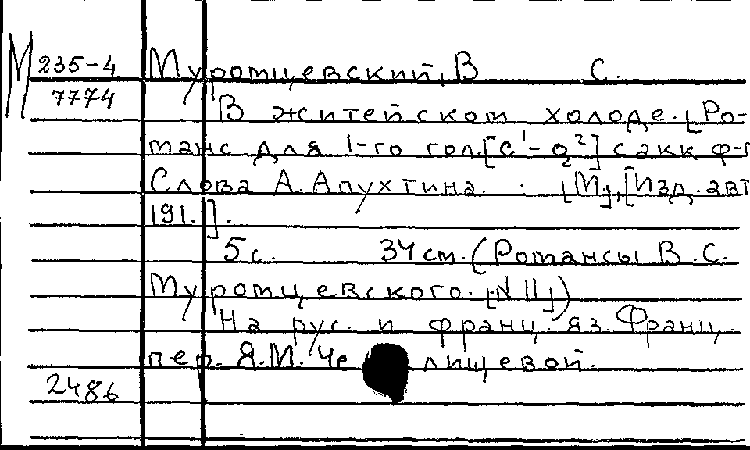 М 235-4 Муромцевский, В С.
7774 В житейском холоде. [Ро-
манс для 1-го гол. [c¹-g²] с акк ф-п
Слова А. Апухтина. [М], [Изд. авт
191.].
5 с. 34 см. (Романсы В. С.
Муромцевского. [N II])
На рус. и франц. яз. Франц.
пер. Я.М. Че лищевой.
2486